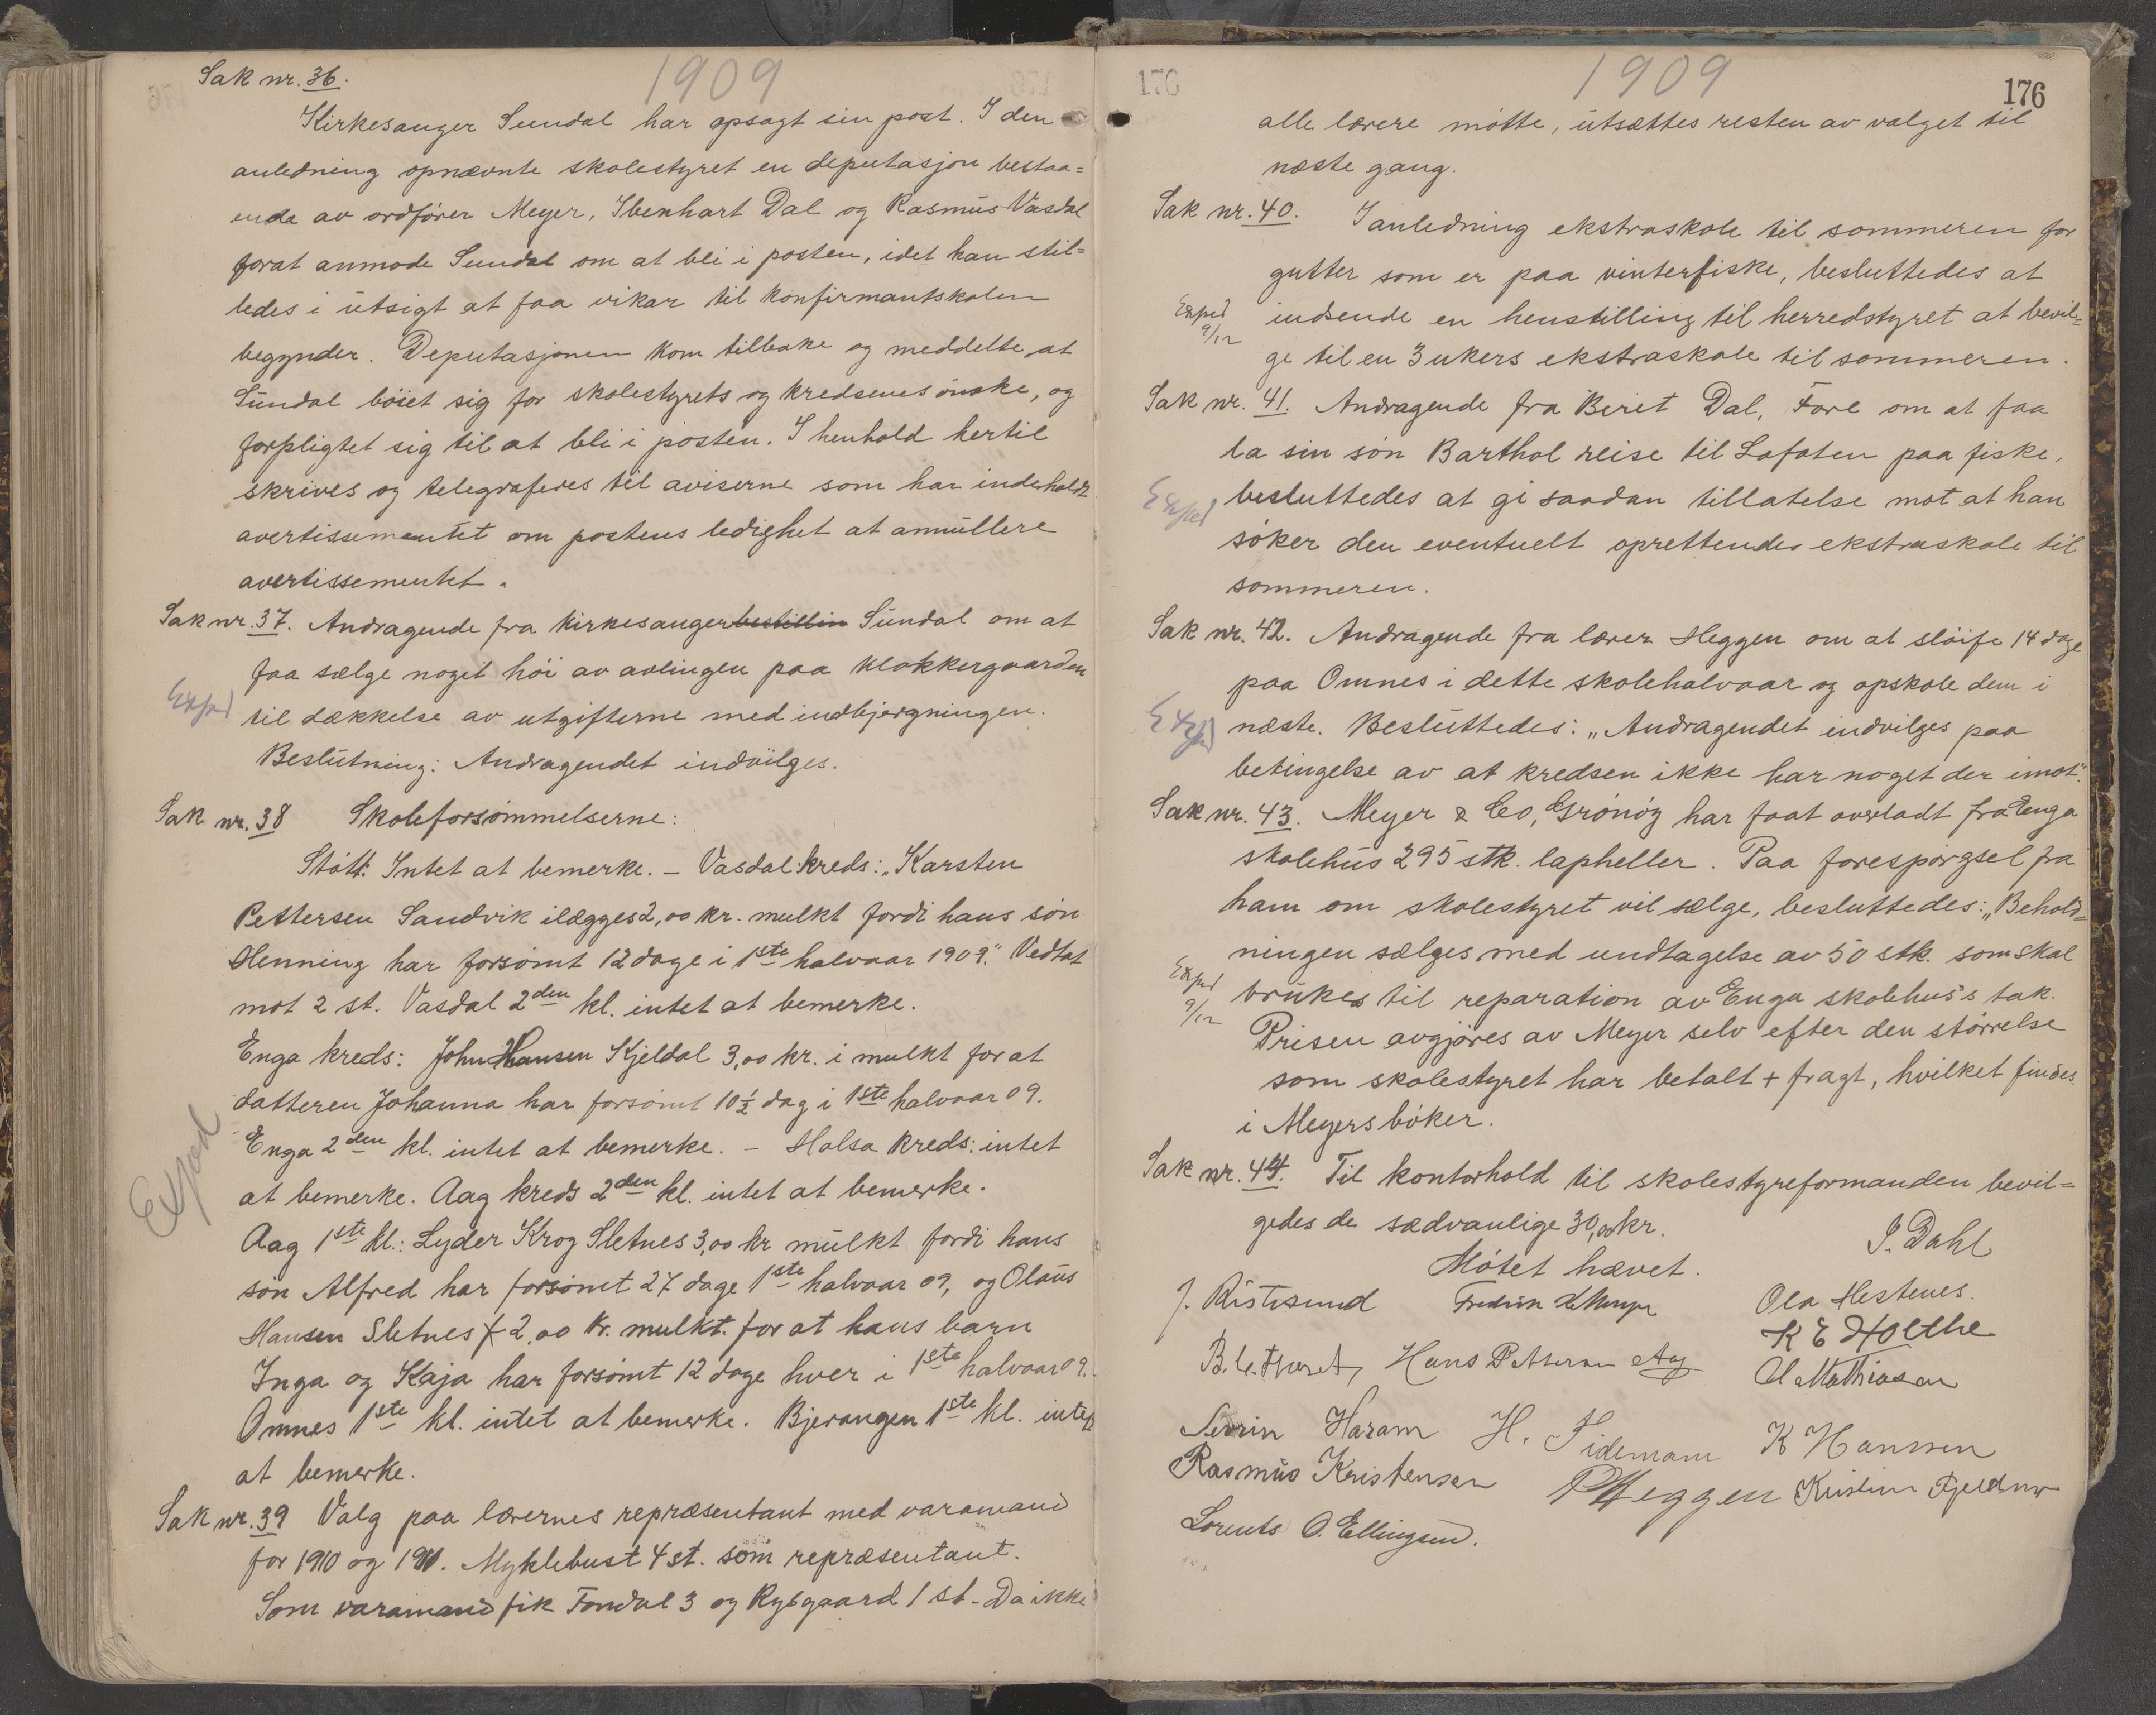 1909
Sak nr. 36.
Kirkesanger Sundal har opsagt sin post. I den
anledning opnævnte skolestyret en deputasjon bestaa=
ende av ordfører Meyer, Ibenhart Dal og Rasmus Vasdal
forat anmode Sundal om at bli i posten, idet han stil=
ledes i utsigt at faa vikar til konfirmantskolen
begynder. Deputasjonen kom tilbake og meddelte, at
Sundal böiet sig for skolestyrets og kredsenes ønske, og
forpligtet sig til at bli i posten. I henhold hertil
skrives og telegraferes til aviserne som har indeholdt
avertissementet om postens ledighet at annullere
avertissementet.
Sak nr. 37. Andragende fra kirkesangerbestillin Sundal om at
faa sælge noget höi av avlingen paa klokkergaarden
Exped til dækkelse av utgifterne med indbjergningen.
Beslutning: Andragendet indvilges.
Sak nr. 38 Skoleforsømmelserne:
Støtt: Intet at bemerke. – Vasdal kreds: „Karsten
Pettersen Sandvik ilægges 2,00 kr. mulkt fordi hans søn
Henning har forsømt 12 dage i 1ste halvaar 1909." Vedtat
mot 2 st. Vasdal 2den kl. intet at bemerke.
Enga kreds: John Hansen Kjeldal 3,00 kr. i mulkt for at
datteren Johanna har forsømt 10½ dag i 1ste halvaar 09.
Exped
Enga 2den kl. intet at bemerke. – Halsa kreds: intet
at bemerke. Aag kreds 2den kl. intet at bemerke.
Aag 1ste kl.: Lyder Krog Sletnes 3,00 kr mulkt fordi hans
søn Alfred har forsømt 27 dage 1ste halvaar 09, og Olaus
Hansen Sletnes 2,00 kr. mulkt. for at hans barn
Inga og Kaja har forsømt 12 dage hver i 1ste halvaar 09.
Omnes 1ste kl. intet at bemerke. Bjerangen 1ste kl. intet
at bemerke.
Sak nr. 39 Valg paa lærernes repræsentant med varamand
for 1910 og 1911. Myklebust 4 st. som repræsentant.
Som varamand fik Fondal 3 og Rysgaard 1 st. Da ikke
1909
176
alle lærere møtte, utsættes resten av valget til
næste gang.
Sak nr. 40. I anledning ekstraskole til sommeren for
gutter som er paa vinterfiske, besluttedes at
Exped 9/12 indsende en henstilling til herredstyret at bevil=
ge til en 3 ukers ekstraskole til sommeren.
Sak nr. 41. Andragende fra Beret Dal, Fore om at faa
la sin søn Barthol reise til Lofoten paa fiske,
Exped besluttedes at gi saadan tillatelse mot at han
søker den eventuelt oprettendes ekstraskole til
sommeren.
Sak nr. 42. Andragende fra lærer Heggen om at slöife 14 dage
paa Omnes i dette skolehalvaar og opskole dem i
Exped næste. Besluttedes: „Andragendet indvilges paa
betingelse av at kredsen ikke har noget der imot".
Sak nr. 43. Meyer & Co, Grönöy har faat overladt fra Enga
skolehus 295 stk. lapheller. Paa forespørgsel fra
ham om skolestyret vil sælge, besluttedes: „Behold=
ningen sælges med undtagelse av 50 stk. som skal
Exped 9/12 brukes til reparation av Enga skolehus's tak.
Prisen avgjøres av Meyer selv efter den størrelse
som skolestyret har betalt + fragt, hvilket findes
i Meyers bøker.
Sak nr. 44. Til kontorhold til skolestyreformanden bevil=
gedes de sædvanlige 30,00 kr.
Møtet hævet.
J. Dahl
Ola Hestenes.
K E Holthe
Hans Pettersen Aag
O Mathiasen
Sevrin Haram H. Tidemann K Hanssen
Rasmus Kristensen P Heggen
Lorents O. Ellingsen.